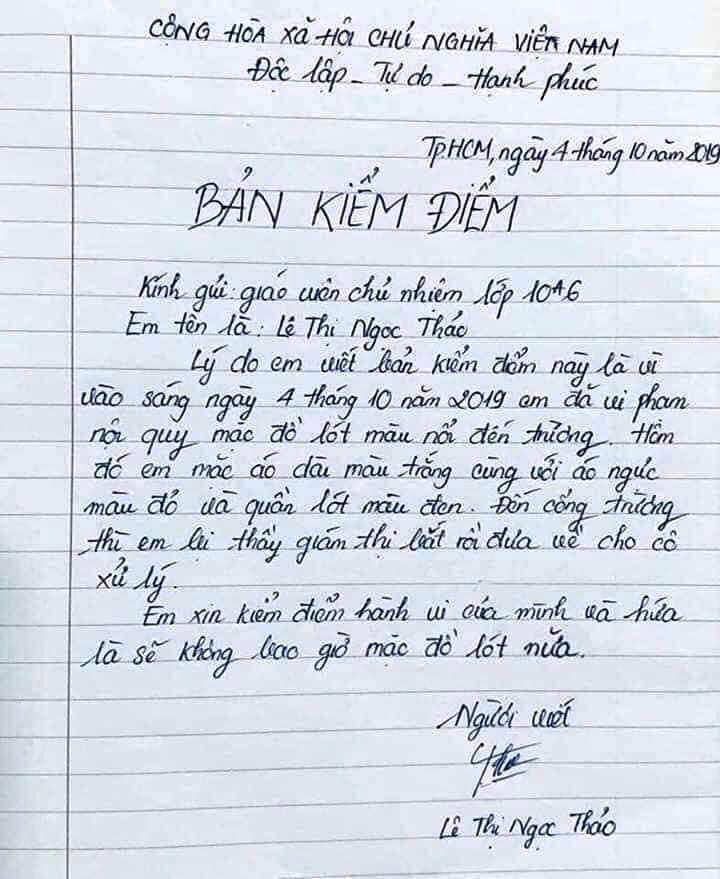 CỘNG HÒA XÃ HỘI CHỦ NGHĨA VIỆT NAM
Độc lập - Tự do - Hạnh phúc
TP.HCM, ngày 4 tháng 10 năm 2019
BẢN KIỂM ĐIỂM
Kính gửi: giáo viên chủ nhiệm lớp 10A6
Em tên là: Lê Thị Ngọc Thảo
Lý do em viết bản kiểm điểm này là vì
vào sáng ngày 4 tháng 10 năm 2019 em đã vi phạm
nội quy mặc đồ lót màu nổi đến trường. Hôm
đó em mặc áo dài màu trắng cùng với áo ngực
màu đỏ và quần lót màu đen. Đến cổng trường
thì em bị thầy giám thị bắt rồi đưa về cho cô
xử lý.
Em xin kiểm điểm hành vi của mình và hứa
là sẽ không bao giờ mặc đồ lót nữa.
Người viết
Lê Thị Ngọc Thảo